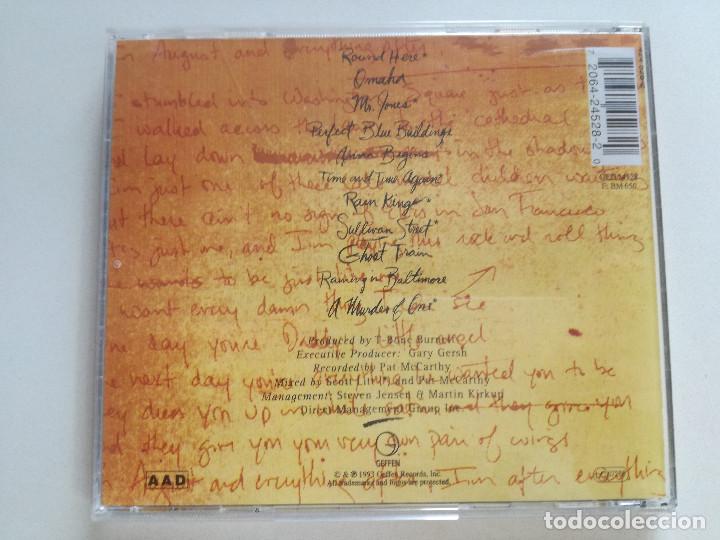 Round Here*
Omaha
Mr. Jones*
Perfect Blue Buildings
Anna Begins
Time and Time Again
Rain King*
Sullivan Street*
Ghost Train
Raining in Baltimore
A Murder of One*
Produced by T-Bone Burnett
Executive Producer: Gary Gersh
Recorded by Pat McCarthy
Mixed by Scott Litt and Pat McCarthy
Management: Steven Jensen & Martin Kirkup
Direct Management Group Inc.
GEFFEN
© & ℗ 1993 Geffen Records, Inc.
All trademarks and logos are protected.
AAD
7 20064-24528-2 0
GED 24528
F: BM 650
August and everything after
stumbled into Washington Square just as
walked across the cathedral
lay down in the shadow
just one of these children waiting
there ain't no sign of in San Francisco
just me, and I'm this rock and roll thing
wants to be just
want every damn thing I see
day you're Daddy's little angel
next day you're wanted you to be
they dress you up in and they give you
they give you your very own pair of wings
August and everything after I'm after everything
todocoleccion.net